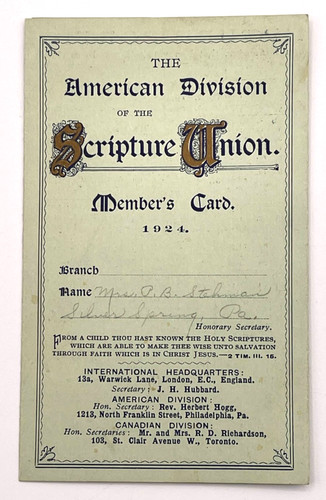 THE
American Division
OF THE
Scripture Union.
Member's Card.
1924.
Branch
Name Mrs. P. B. Stehman
Silver Spring, Pa.
Honorary Secretary.
FROM A CHILD THOU HAST KNOWN THE HOLY SCRIPTURES,
WHICH ARE ABLE TO MAKE THEE WISE UNTO SALVATION
THROUGH FAITH WHICH IS IN CHRIST JESUS.—2 TIM. III. 15.
INTERNATIONAL HEADQUARTERS:
13a, Warwick Lane, London, E.C., England.
Secretary: J. H. Hubbard.
AMERICAN DIVISION:
Hon. Secretary: Rev. Herbert Hogg,
1213, North Franklin Street, Philadelphia, Pa.
CANADIAN DIVISION:
Hon. Secretaries: Mr. and Mrs. R. D. Richardson,
103, St. Clair Avenue W., Toronto.